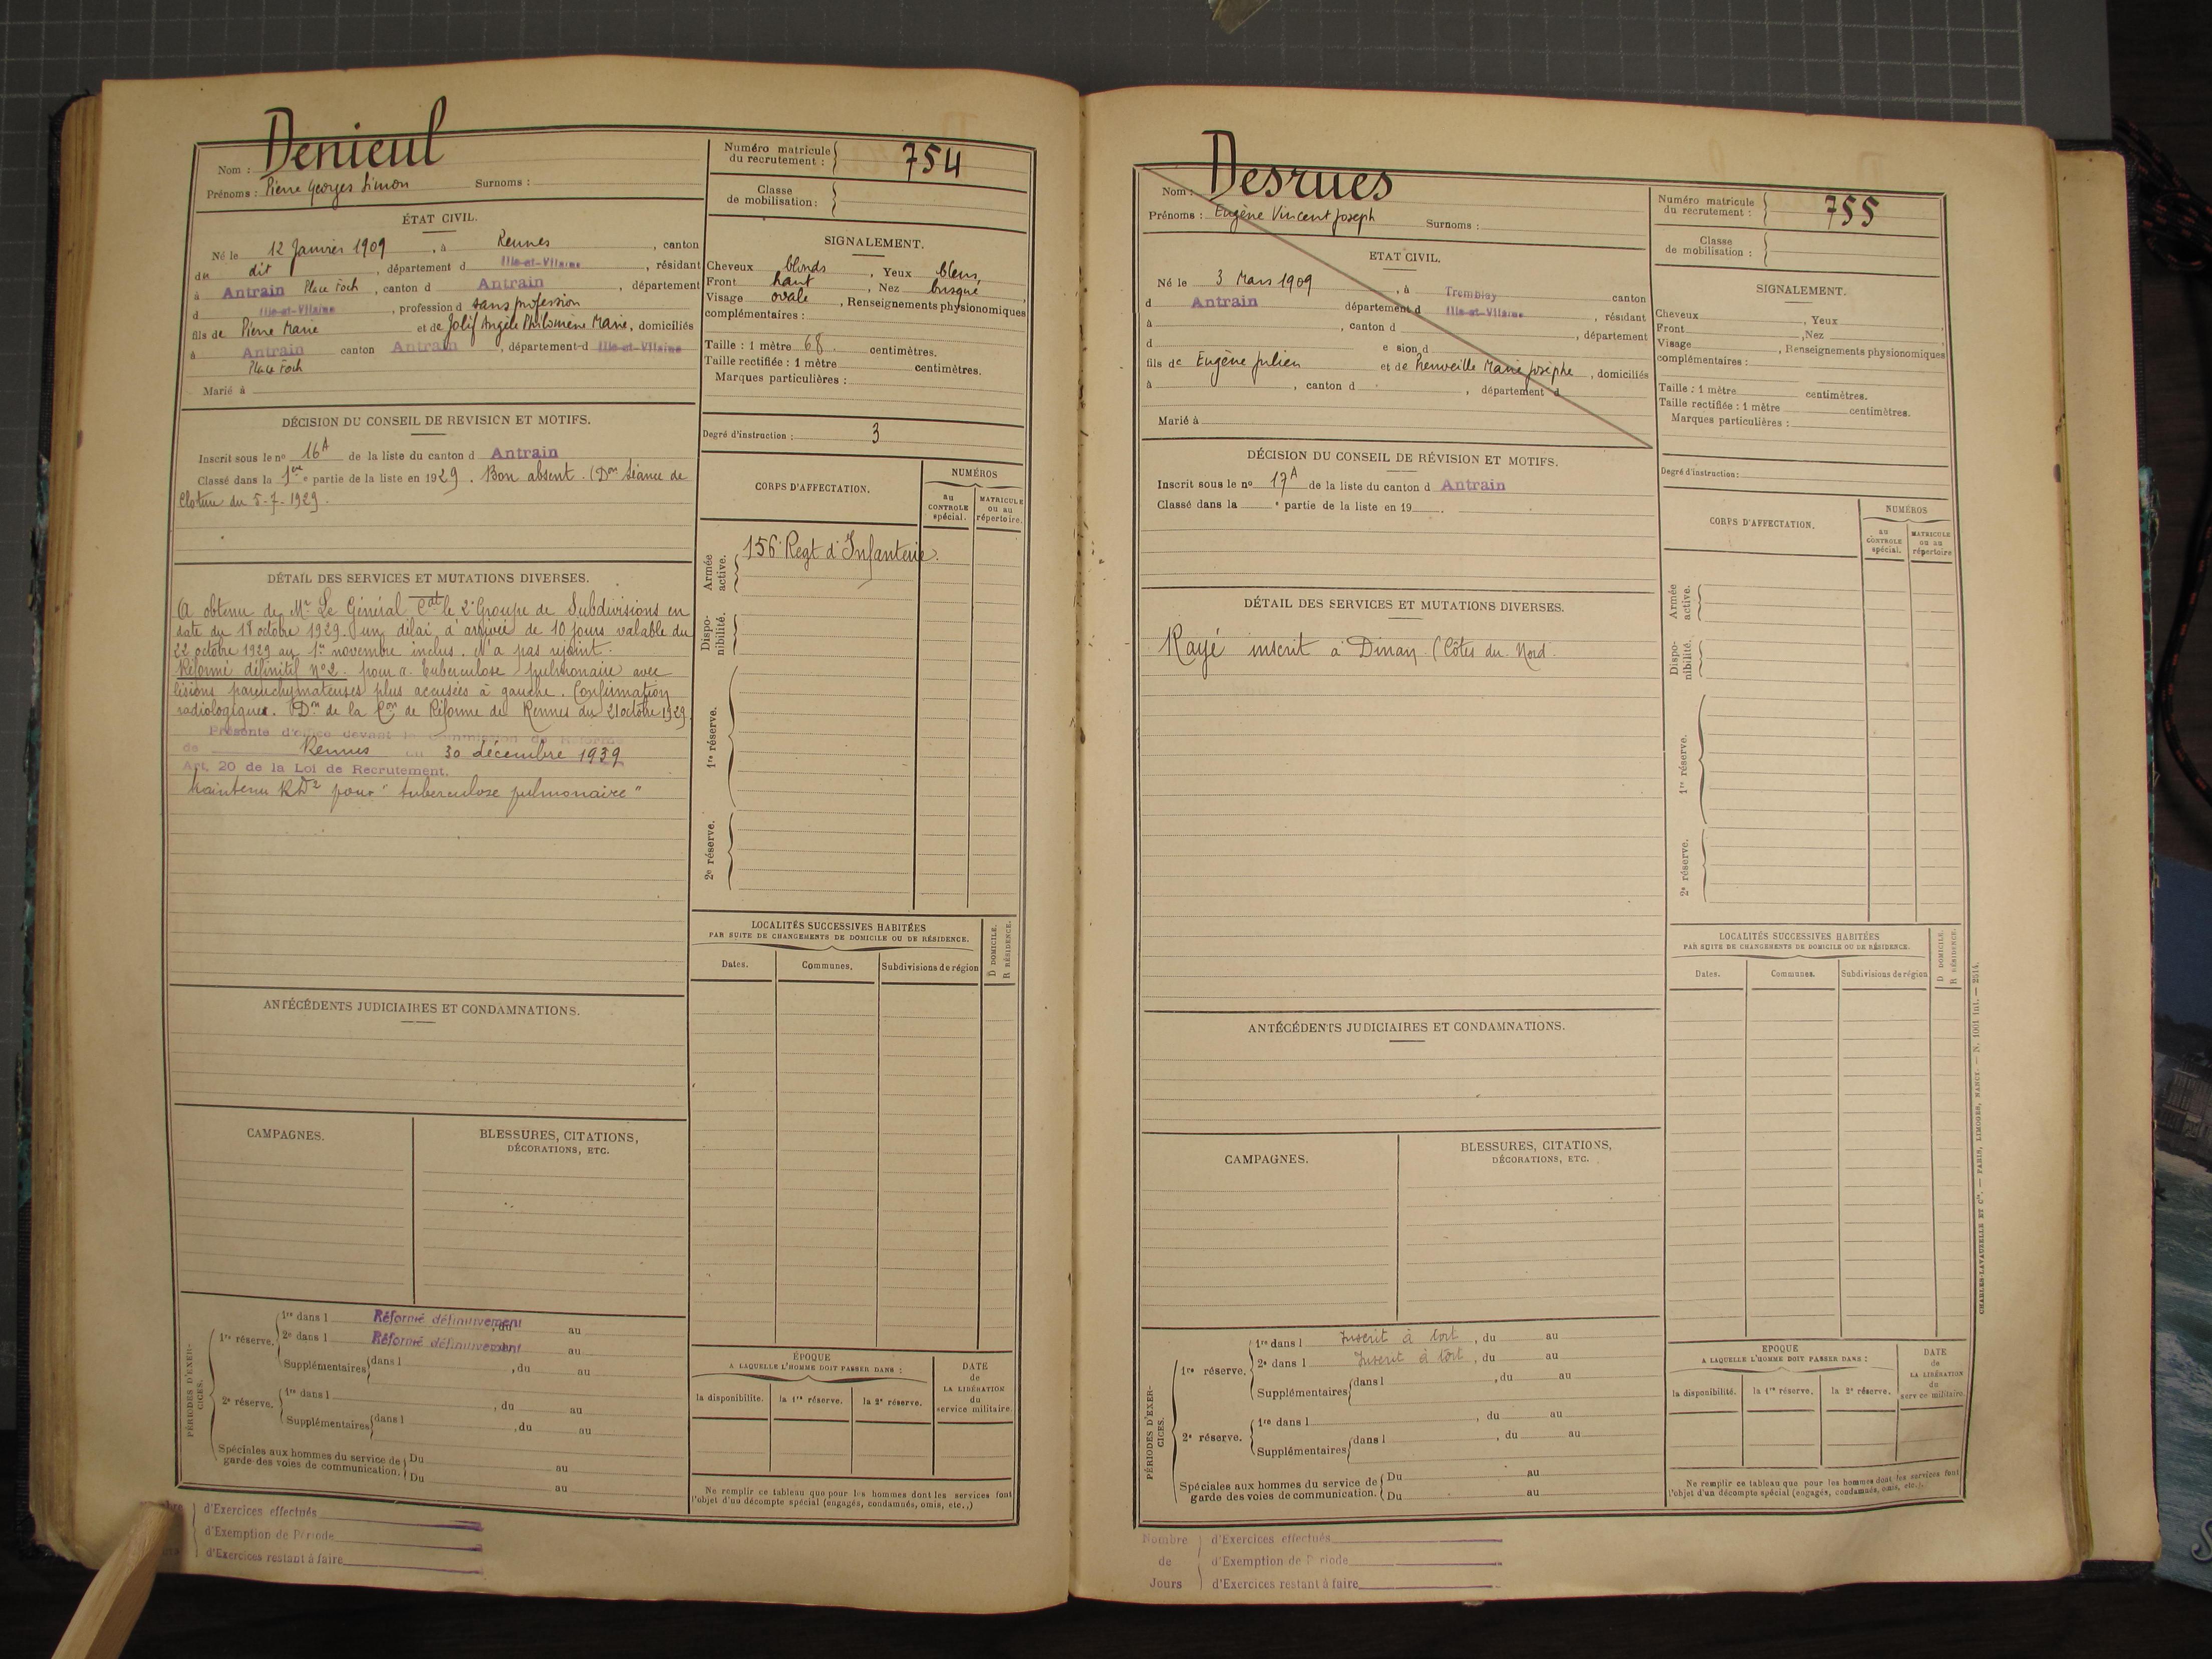 Nom : Denieul
Prénoms : Pierre Georges Simon Surnoms :
Numéro matricule du recrutement : 754
Classe de mobilisation :
ÉTAT CIVIL.
Né le 12 Janvier 1909, à Rennes, canton
du dit, département d Ille-et-Vilaine, résidant
à Antrain Place Foch, canton d Antrain, département
d Ille-et-Vilaine, profession d sans profession
fils de Pierre Marie et de Jolif Angèle Philomène Marie, domiciliés
à Antrain canton Antrain, département d Ille-et-Vilaine
Place Foch
Marié à
SIGNALEMENT.
Cheveux blonds, Yeux bleus,
Front haut, Nez busqué,
Visage ovale, Renseignements physionomiques
complémentaires :
Taille : 1 mètre 68 centimètres.
Taille rectifiée : 1 mètre centimètres.
Marques particulières :
Degré d'instruction : 3
DÉCISION DU CONSEIL DE REVISION ET MOTIFS.
Inscrit sous le nº 16A de la liste du canton d Antrain
Classé dans la 1ere partie de la liste en 1929. Bon absent. (Don Séance de
Cloture du 5-7-1929.
CORPS D'AFFECTATION.
NUMÉROS
au CONTROLE spécial.
MATRICULE ou au répertoire.
Armée active.
156e Regt d'Infanterie.
Dispo-nibilité.
1re réserve.
2e réserve.
DÉTAIL DES SERVICES ET MUTATIONS DIVERSES.
A obtenu de Mr Le Général Cdt le 2e Groupe de Subdivisions en
date du 18 octobre 1929. un délai d'arrivée de 10 jours valable du
22 octobre 1929 au 1er novembre inclus. N'a pas rejoint.
Réformé définitif nº2. pour "Tuberculose pulmonaire avec
lésions parenchymateuses plus accusées à gauche. Confirmation
radiologique. Don de la Con de Réforme de Rennes du 21 octobre 1929.
Présenté d'office devant la Commission de Réforme
de Rennes du 30 décembre 1939
Art. 20 de la Loi de Recrutement.
Maintenu RD2 pour "tuberculose pulmonaire"
LOCALITÉS SUCCESSIVES HABITÉES
PAR SUITE DE CHANGEMENTS DE DOMICILE OU DE RÉSIDENCE.
Dates. Communes. Subdivisions de région
D DOMICILE. R RÉSIDENCE.
ANTÉCÉDENTS JUDICIAIRES ET CONDAMNATIONS.
CAMPAGNES.
BLESSURES, CITATIONS,
DÉCORATIONS, ETC.
PÉRIODES D'EXER-CICES.
1re réserve.
1re dans l Réformé définitivement, du au
2e dans l Réformé définitivement au
Supplémentaires dans l, du au
2e réserve.
1re dans l, du au
Supplémentaires dans l, du au
Spéciales aux hommes du service de garde des voies de communication.
Du au
Du au
ÉPOQUE
A LAQUELLE L'HOMME DOIT PASSER DANS :
la disponibilité. la 1re réserve. la 2e réserve.
DATE de LA LIBÉRATION du service militaire.
Ne remplir ce tableau que pour les hommes dont les services font
l'objet d'un décompte spécial (engagés, condamnés, omis, etc.,)
d'Exercices effectués
d'Exemption de Période
d'Exercices restant à faire
Nom : Desrues
Prénoms : Eugène Vincent Joseph Surnoms :
Numéro matricule du recrutement : 755
Classe de mobilisation :
ETAT CIVIL.
Né le 3 Mars 1909, à Tremblay canton
d Antrain département d Ille-et-Vilaine, résidant
à, canton d, département
d e sion d
fils de Eugène Julien et de Marie Josèphe, domiciliés
à, canton d, département d
Marié à
SIGNALEMENT.
Cheveux, Yeux,
Front, Nez,
Visage, Renseignements physionomiques
complémentaires :
Taille : 1 mètre centimètres.
Taille rectifiée : 1 mètre centimètres.
Marques particulières :
Degré d'instruction :
DÉCISION DU CONSEIL DE RÉVISION ET MOTIFS.
Inscrit sous le nº 17A de la liste du canton d Antrain
Classé dans la e partie de la liste en 19.
CORPS D'AFFECTATION.
NUMÉROS
au CONTROLE spécial.
MATRICULE ou au répertoire
Armée active.
Dispo-nibilité.
1re réserve.
2e réserve.
DÉTAIL DES SERVICES ET MUTATIONS DIVERSES.
Rayé inscrit à Dinan (Côtes du Nord.
LOCALITÉS SUCCESSIVES HABITÉES
PAR SUITE DE CHANGEMENTS DE DOMICILE OU DE RÉSIDENCE.
Dates. Communes. Subdivisions de région
D DOMICILE. R RÉSIDENCE.
ANTÉCÉDENTS JUDICIAIRES ET CONDAMNATIONS.
CAMPAGNES.
BLESSURES, CITATIONS,
DÉCORATIONS, ETC.
PÉRIODES D'EXER-CICES.
1re réserve.
1re dans l Inscrit à tort, du au
2e dans l Inscrit à tort, du au
Supplémentaires dans l, du au
2e réserve.
1re dans l, du au
Supplémentaires dans l, du au
Spéciales aux hommes du service de garde des voies de communication.
Du au
Du au
EPOQUE
A LAQUELLE L'HOMME DOIT PASSER DANS :
la disponibilité. la 1re réserve. la 2e réserve.
DATE de LA LIBÉRATION du serv ce militaire.
Ne remplir ce tableau que pour les hommes dont les services font
l'objet d'un décompte spécial (engagés, condamnés, omis, etc.,).
Nombre de Jours
d'Exercices effectués
d'Exemption de P riode
d'Exercices restant à faire
CHARLES-LAVAUZELLE ET Cie. — PARIS, LIMOGES, NANCY. — N. 1001 Int. — 2514.